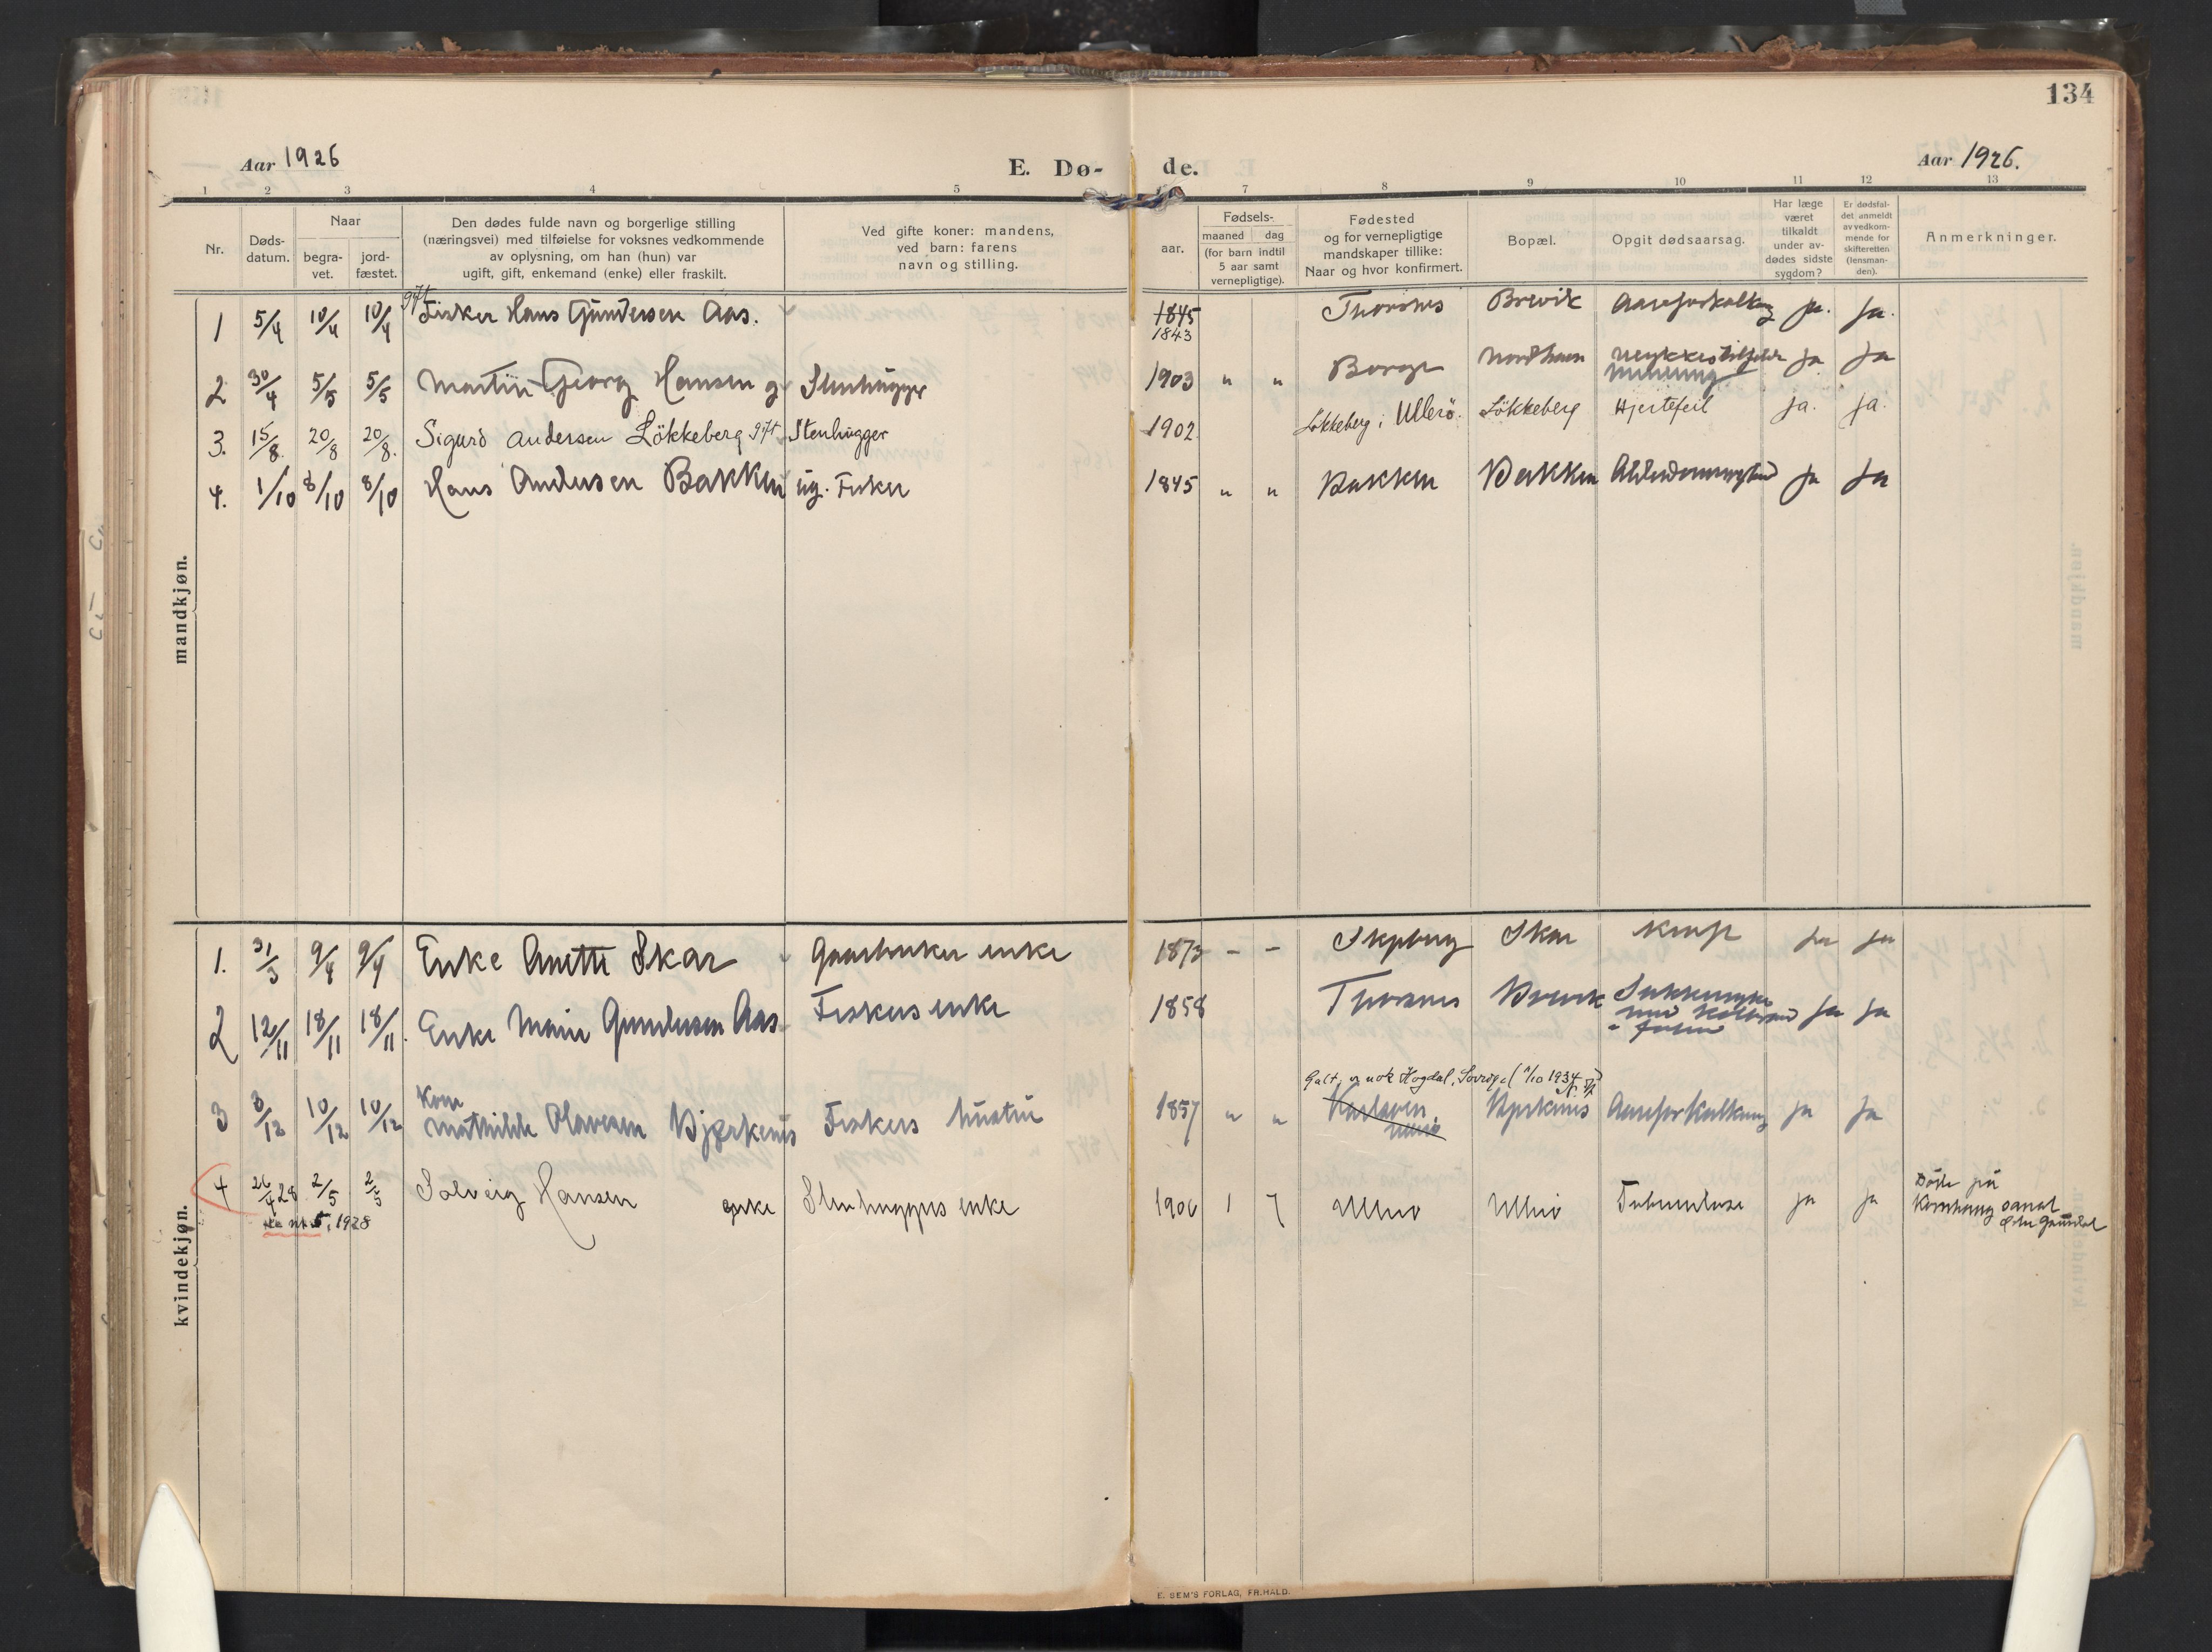 134
Aar 1926 E. Dø- de. Aar 1926.
1 2 3 4 5 7 8 9 10 11 12 13
Nr.
Døds-
datum.
Naar
begra-
vet.
jord-
fæstet.
Den dødes fulde navn og borgerlige stilling
(næringsvei) med tilføielse for voksnes vedkommende
av oplysning, om han (hun) var
ugift, gift, enkemand (enke) eller fraskilt.
Ved gifte koner: mandens,
ved barn: farens
navn og stilling.
aar.
Fødsels-
maaned dag
(for barn indtil
5 aar samt
vernepligtige).
Fødested
og for vernepligtige
mandskaper tillike:
Naar og hvor konfirmert.
Bopæl.
Opgit dødsaarsag.
Har læge
været
tilkaldt
under av-
dødes sidste
sygdom?
Er dødsfal-
det anmeldt
av vedkom-
mende for
skifteretten
(lensman-
den).
Anmerkninger.
mandkjøn.
gift
1 5/4 10/4 10/4 Fisker Hans Gundersen Aas. 1845 Thorsnes Brevik Aareforkalkng ja. ja.
1843
2 30/4 5/5 5/5 Martin Georg Hansen g Stenhugger 1903 " " Borge Nordhaven ja ja
3. 15/8 20/8 20/8. Sigurd Andersen Lökkeberg gift Stenhugger 1902 Lökkeberg i Ullerö. Lökkeberg Hjertefeil ja. ja.
4. 1/10 8/10 8/10 Hans Andersen Bakken ug. Fisker 1845 " " Bakken Bakken ja ja
kvindekjøn.
1. 31/3 9/4 9/4 Enke Anette Skar Gaardbruker enke 1873 - - Skjeberg Skar Kræft ja ja
2 12/11 18/11 18/11. Enke Marie Gundersen Aas Fiskers enke 1858 Thorsnes Brevik Sukkersyke
med Koldbrand ja ja
Galt, er nok Hogdal, (1/10 1934
3 3/12 10/12 10/12 Kone
Mathilde Olavesen Bjørkenes Fiskers hustru 1857 " " Bjørkenes Aareforkalkning ja ja
4 26/4 28 2/5 2/5 Solveig Hansen enke Stenhuggers enke 1906 1 7 Ullerø Ullerø Tuberkulose ja ja Döde på
Kornhaug sanat
Östre Gausdal
nr 5, 1928
E. SEM'S FORLAG, FR.HALD.